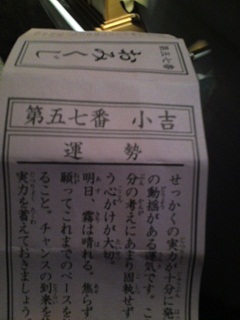 第五七番
おみくじ
第五七番 小吉
運勢
せっかくの実力が十分に発
の動揺がある運気です。こ
分の考えにあまり固執せず
う心がけが大切。
明日、霧は晴れる。焦らず
願ってこれまでのペースを
ること。チャンスの到来を
実力を蓄えておきましょう